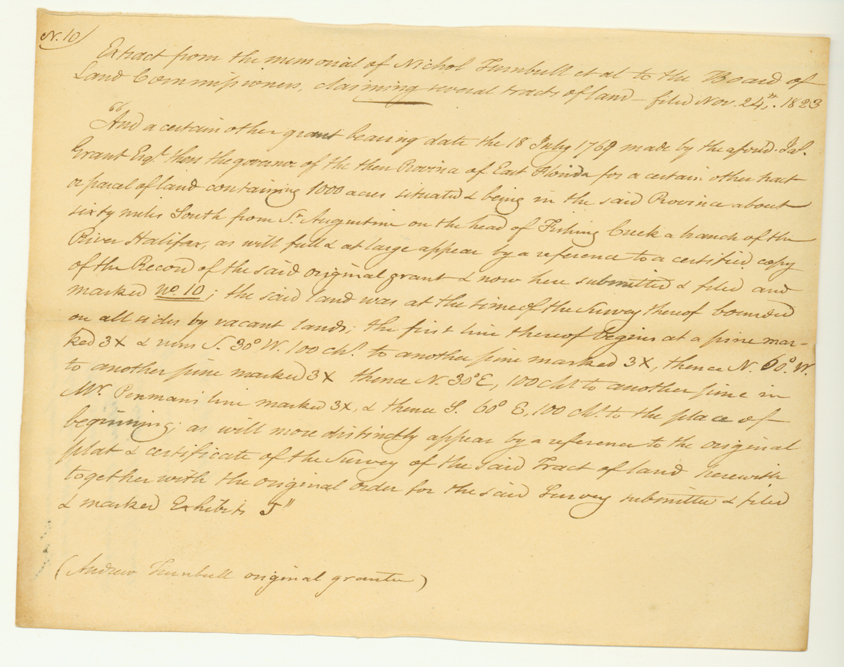 N. 10
Extract from the memorial of Nichol Turnbull et al to the Board of
Land Commissioners, claiming several tracts of land – filed Nov. 24th. 1823
"And a certain other grant bearing date the 18 July 1769 made by the aforsd. Jas.
Grant Esqr. then the governor of the then Province of East Florida for a certain other tract
or parcel of land containing 1000 acres situated & being in the said Province about
sixty miles South from St. Augustine on the head of Fishing Creek a branch of the
River Halifax, as will full & at large appear by a reference to a certified copy
of the Record of the said original grant & now here submitted & filed and
marked No. 10; the said land was at the time of the Survey thereof bounded
on all sides by vacant lands; the first line thereof begins at a pine mar-
ked 3X & runs S. 30° W. 100 chs. to another pine marked 3X, thence N. 60°. W.
to another pine marked 3X thence N. 30° E, 100 chs. to another pine in
Mr. Penman's line marked 3X, & thence S. 60° E, 100 chs. to the place of
beginning; as will more distinctly appear by a reference to the original
plat & certificate of the Survey of the said Tract of land herewith
together with the original order for the said Survey submitted & filed
& marked Exhibits J"
(Andrew Turnbull original grantee)